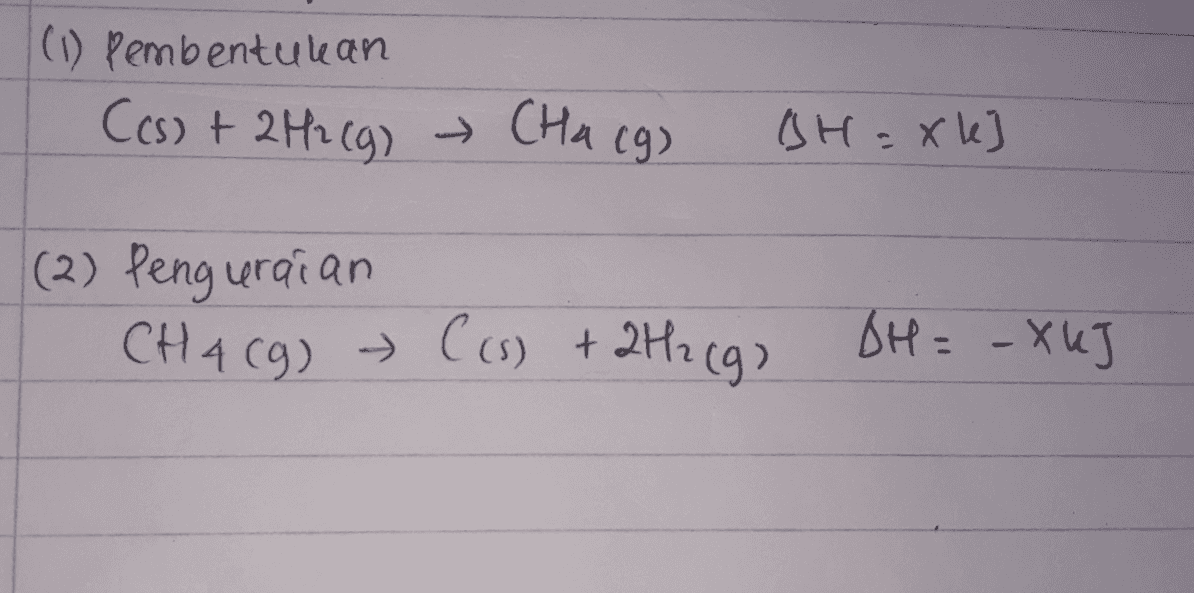 (1) Pembentukan
C(s) + 2H2(g) → CH4(g) ΔH = x kJ
(2) Penguraian
CH4(g) → C(s) + 2H2(g) ΔH = -x kJ